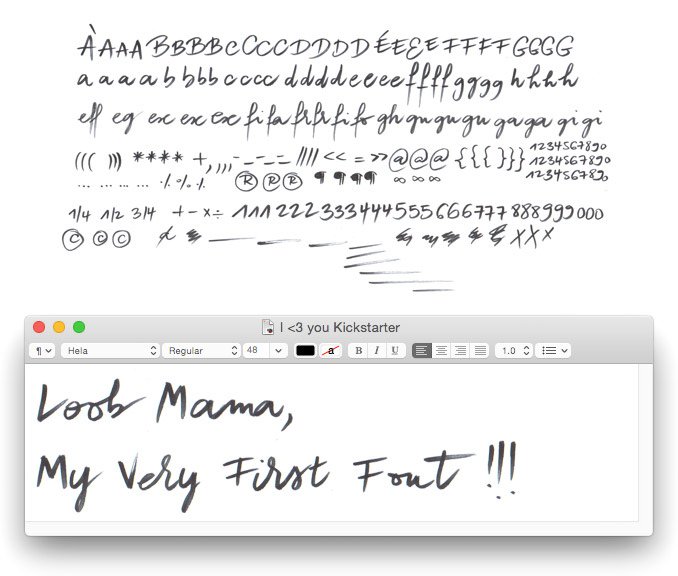 ÀAAA BBBB CCCC DDDD ÉEEE FFFF GGGG
a a a a b b b b c c c c d d d d e e e e f f f f g g g g h h h h
eff eg ex ex ex fi fa fr fr fi fo gh gu gu gu ga ga gi gi
((( ))) **** +,,,,----- //// << = >> @@@ {{{ }}} 1234567890
1234567890
... ... ... ... % % % ® ® ® ¶ ¶ ¶¶ ∞ ∞ ∞ 1234567890
1/4 1/2 3/4 + - × ÷ 111 222 333 444 555 666 777 888 999 000
© © © X X X
I <3 you Kickstarter
¶ Hela Regular 48 a B I U 1.0
Loob Mama,
My Very First Font !!!